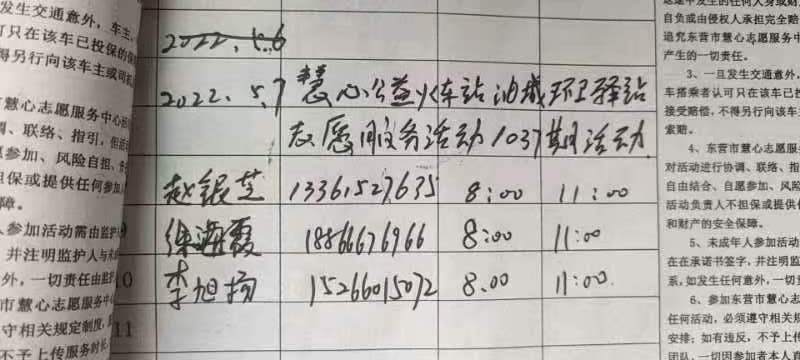 发生交通意外，车主、
可只在该车已投保的保
得另行向该车主或司
慧心志愿服务中心
调、联络、指引，但
愿参加、风险自担、
担保或提供任何参加
障。
人参加活动需由监护
并注明监护人与
外，一切责任由监
市慧心志愿服务中
守相关规定制度，
不予上传服务时长
10
11
2022.5.6
2022.5.7 慧心公益火车站油城环卫驿站
志愿服务活动1037期活动
赵银芝 13361527635 8:00 11:00
徐海霞 18866676966 8:00 11:00
李旭扬 15266015072 8.00 11:00
途中发生的任何人身或财
自负或由侵权人承担完全赔
追究东营市慧心志愿服务中
产生的一切责任。
3、一旦发生交通意外，
车搭乘者认可只在该车已投
接受赔偿，不得另行向该车
索赔。
4、东营市慧心志愿服
对活动进行协调、联络、指
自由结合、自愿参加、风险
活动负责人不担保或提供
和财产的安全保障。
5、未成年人参加活动
在在承诺书签字，并注明监
系，如发生任何意外，一切
6、参加东营市慧心志
任何活动，必须遵守相关规
安排；如有违反，不予上传
团队，一切因参加者本人